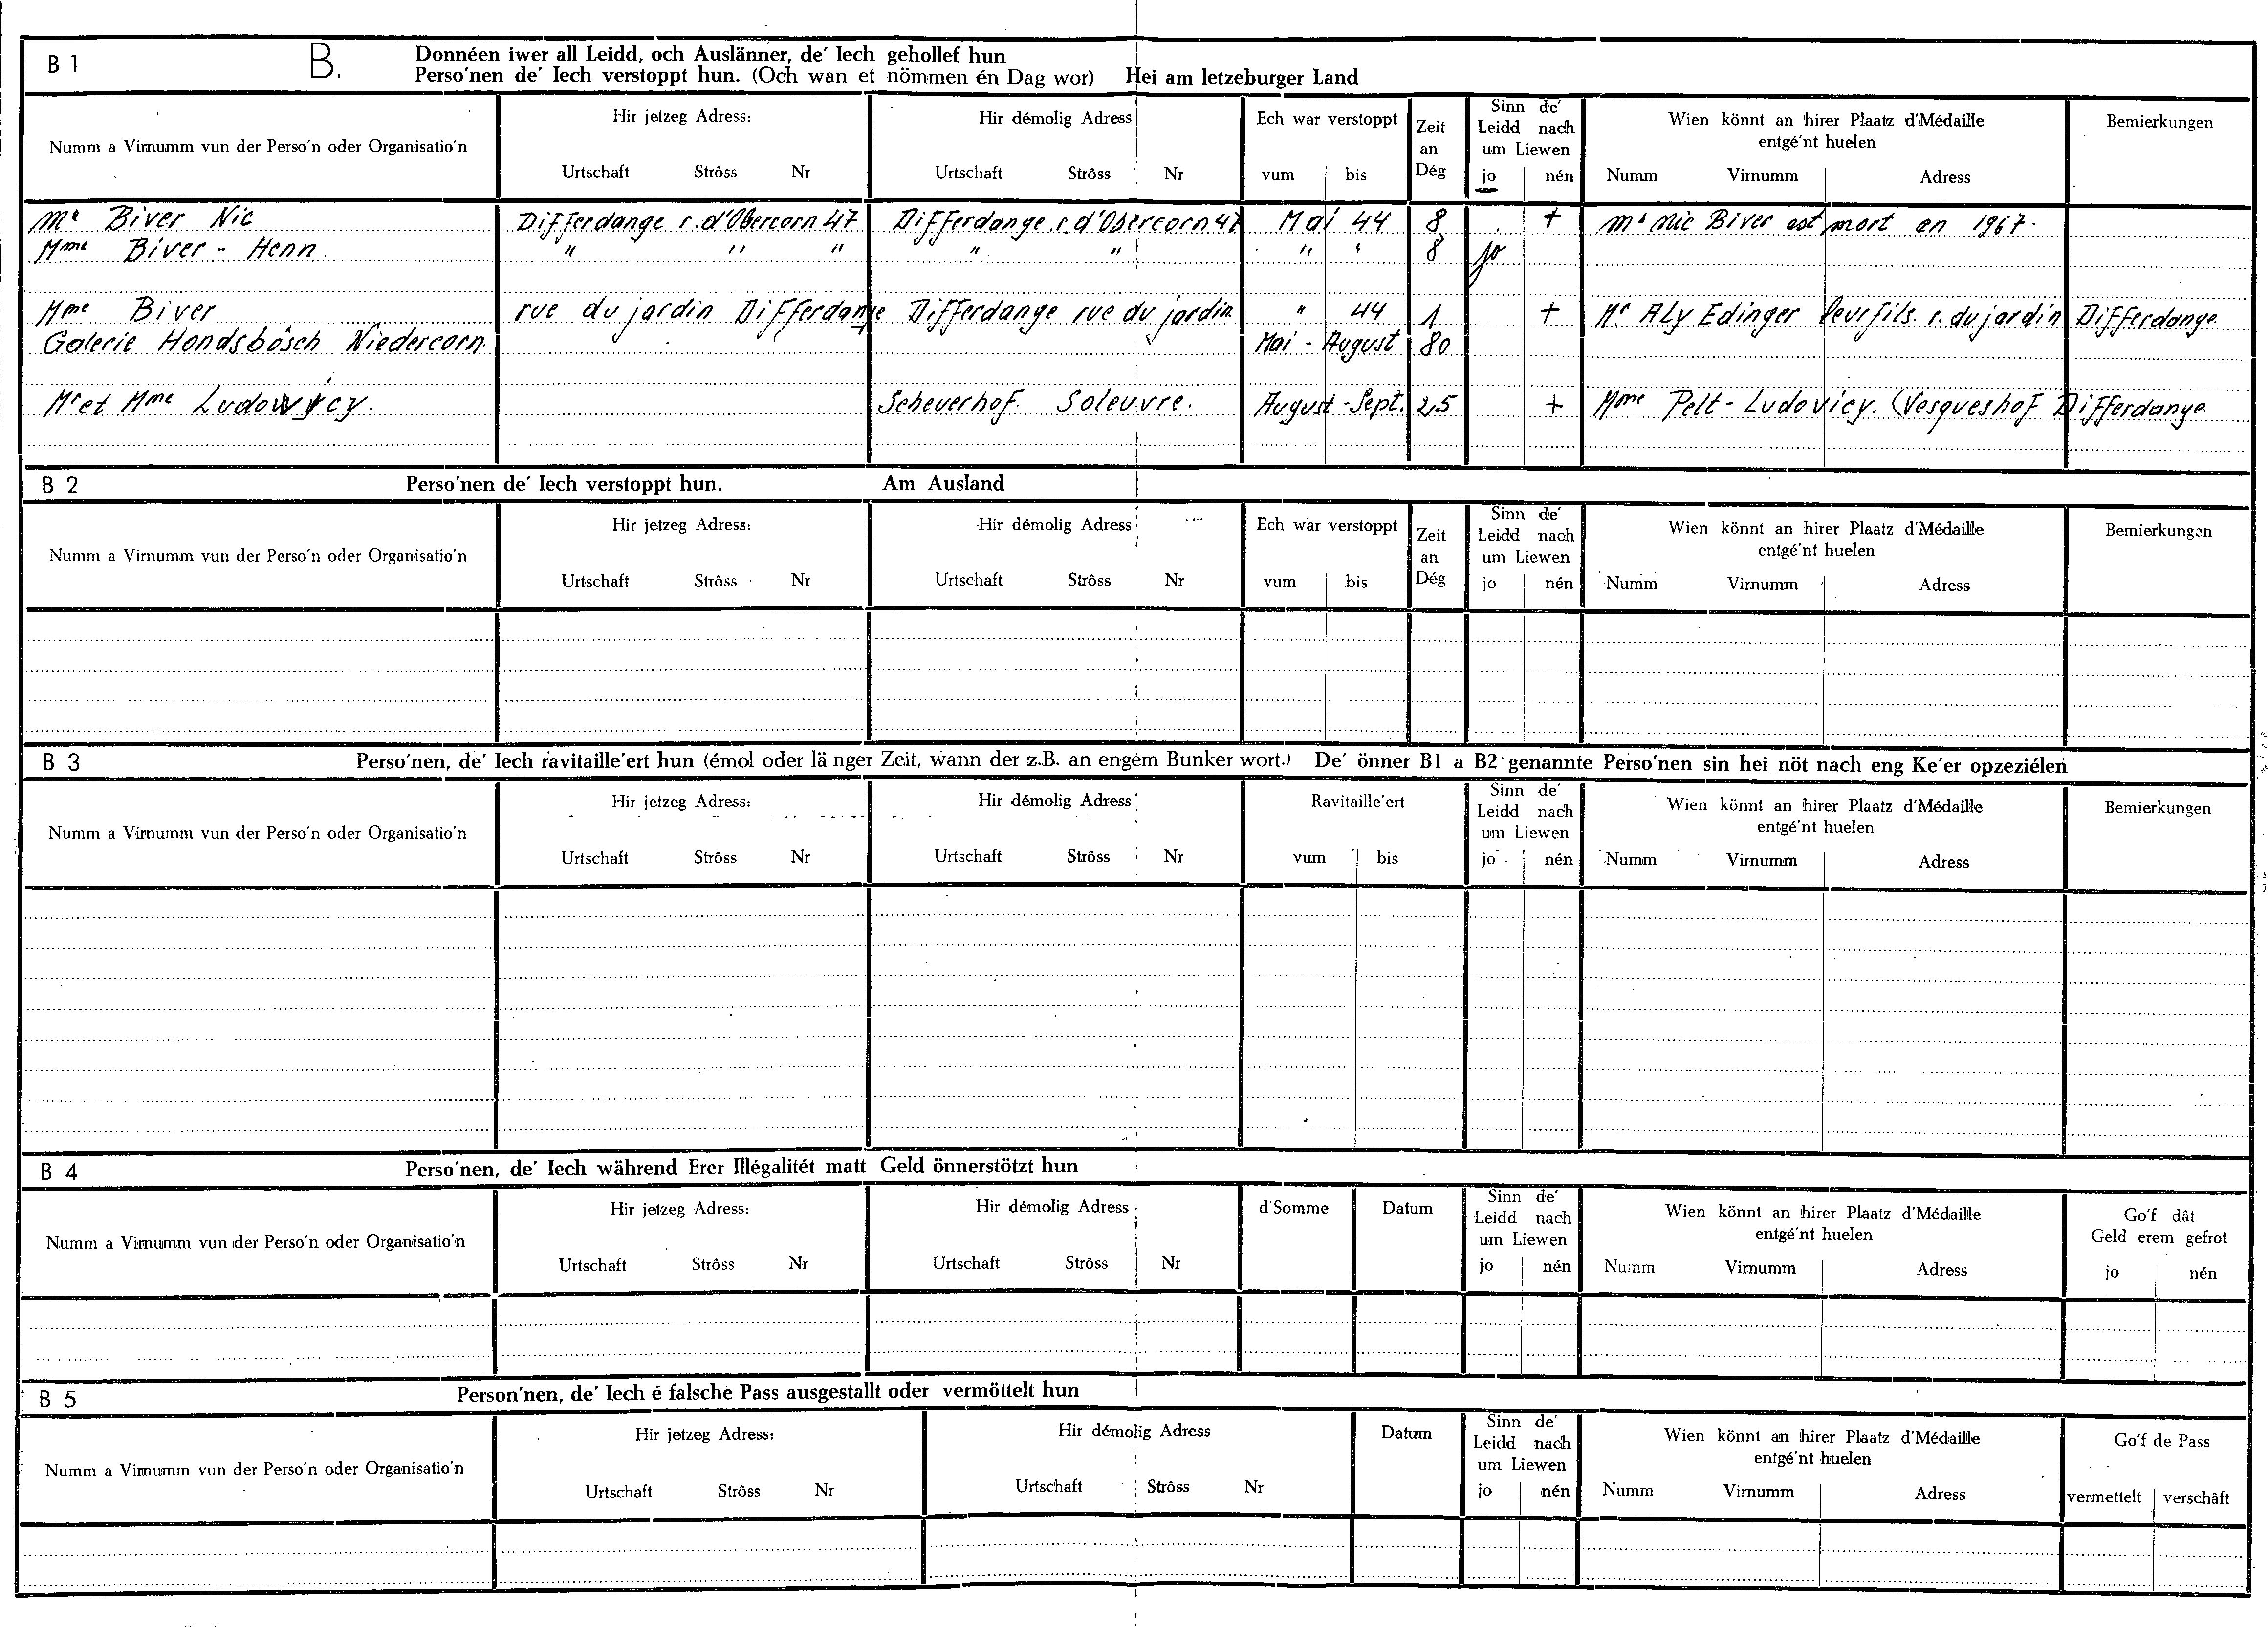 B 1 B. Donnéen iwer all Leidd, och Auslänner, de' Iech gehollef hun
Perso'nen de' Iech verstoppt hun. (Och wan et nömmen én Dag wor) Hei am letzeburger Land
Numm a Virnumm vun der Perso'n oder Organisatio'n
Hir jetzeg Adress:
Urtschaft Strôss Nr
Hir démolig Adress
Urtschaft Strôss Nr
Ech war verstoppt
vum bis
Zeit
an
Dég
Sinn de'
Leidd nach
um Liewen
jo nén
Wien könnt an hirer Plaatz d'Médaille
entgé'nt huelen
Numm Virnumm Adress
Bemierkungen
Mr Biver Nic Differdange r. d'Obercorn 47 Differdange r. d'Obercorn 47 Mai 44 8 + Mr Nic Biver est mort en 1967.
Mme Biver - Henn. " " " " " " " 8 jo
Mme Biver rue du jardin Differdange Differdange rue du jardin " 44 1 + Mr Aly Edinger leur fils. r. du jardin Differdange.
Galerie Hondsbösch Niedercorn. Mai - August 80
Mr et Mme Ludowycy. Scheuerhof. Soleuvre. August - Sept. 25 + Mme Pelt - Ludovicy. (Vesqueshof Differdange.
B 2 Perso'nen de' Iech verstoppt hun. Am Ausland
Numm a Virnumm vun der Perso'n oder Organisatio'n
Hir jetzeg Adress:
Urtschaft Strôss Nr
Hir démolig Adress
Urtschaft Strôss Nr
Ech war verstoppt
vum bis
Zeit
an
Dég
Sinn de'
Leidd nach
um Liewen
jo nén
Wien könnt an hirer Plaatz d'Médaille
entgé'nt huelen
Numm Virnumm Adress
Bemierkungen
B 3 Perso'nen, de' Iech ravitaille'ert hun (émol oder länger Zeit, wann der z.B. an engem Bunker wort.) De' önner B1 a B2 genannte Perso'nen sin hei nöt nach eng Ke'er opzeziélen
Numm a Virnumm vun der Perso'n oder Organisatio'n
Hir jetzeg Adress:
Urtschaft Strôss Nr
Hir démolig Adress
Urtschaft Strôss Nr
Ravitaille'ert
vum bis
Sinn de'
Leidd nach
um Liewen
jo nén
Wien könnt an hirer Plaatz d'Médaille
entgé'nt huelen
Numm Virnumm Adress
Bemierkungen
B 4 Perso'nen, de' Iech während Erer Illégalitét matt Geld önnerstötzt hun
Numm a Virnumm vun der Perso'n oder Organisatio'n
Hir jetzeg Adress:
Urtschaft Strôss Nr
Hir démolig Adress
Urtschaft Strôss Nr
d'Somme
Datum
Sinn de'
Leidd nach
um Liewen
jo nén
Wien könnt an hirer Plaatz d'Médaille
entgé'nt huelen
Numm Virnumm Adress
Go'f dât
Geld erem gefrot
jo nén
B 5 Person'nen, de' Iech é falsche Pass ausgestallt oder vermöttelt hun
Numm a Virnumm vun der Perso'n oder Organisatio'n
Hir jetzeg Adress:
Urtschaft Strôss Nr
Hir démolig Adress
Urtschaft Strôss Nr
Datum
Sinn de'
Leidd nach
um Liewen
jo nén
Wien könnt an hirer Plaatz d'Médaille
entgé'nt huelen
Numm Virnumm Adress
Go'f de Pass
vermettelt verschâft